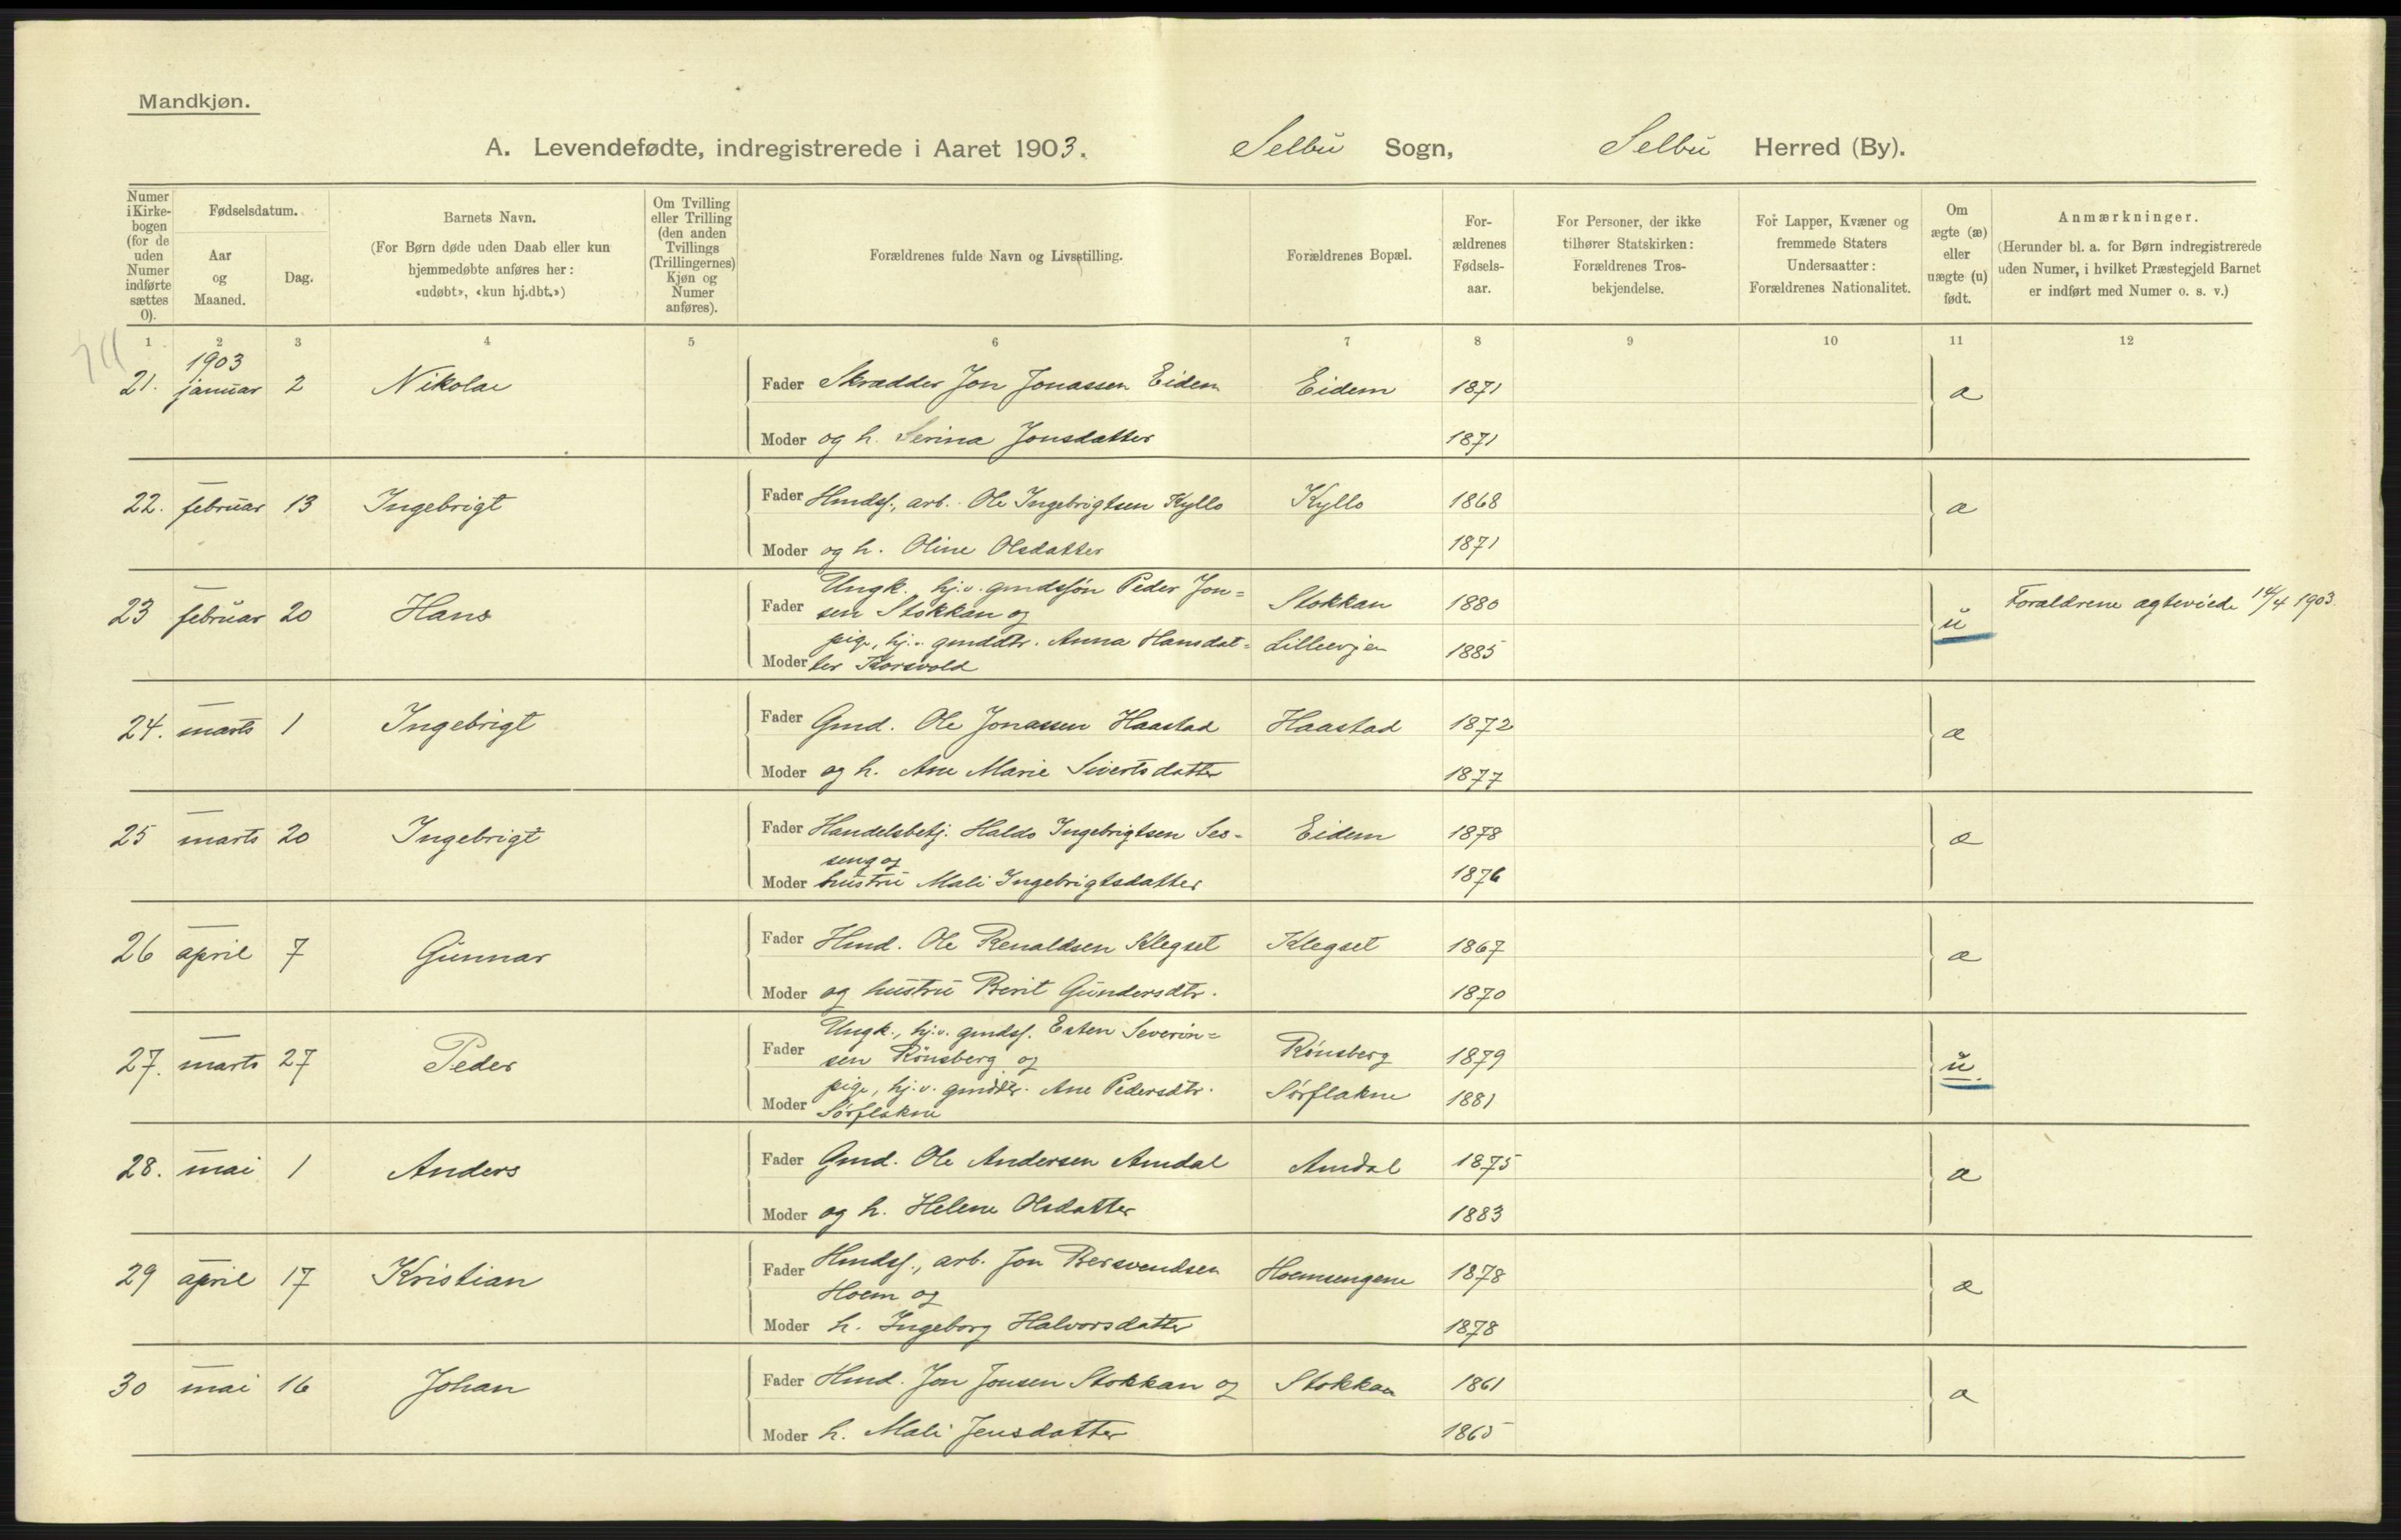 Mandkjøn.
A. Levendefødte, indregistrerede i Aaret 1903. Selbu Sogn, Selbu Herred (By).
Numer i Kirkebogen (for de uden Numer indførte sættes 0).
Fødselsdatum.
Aar og Maaned.
Dag.
Barnets Navn.
(For Børn døde uden Daab eller kun hjemmedøbte anføres her: «udøbt», «kun hj.dbt.»)
Om Tvilling eller Trilling (den anden Tvillings (Trillingernes) Kjøn og Numer anføres).
Forældrenes fulde Navn og Livsstilling.
Forældrenes Bopæl.
Forældrenes Fødselsaar.
For Personer, der ikke tilhører Statskirken: Forældrenes Trosbekjendelse.
For Lapper, Kvæner og fremmede Staters Undersaatter: Forældrenes Nationalitet.
Om ægte (æ) eller uægte (u) født.
Anmærkninger.
(Herunder bl. a. for Børn indregistrerede uden Numer, i hvilket Præstegjeld Barnet er indført med Numer o. s. v.)
1 2 3 4 5 6 7 8 9 10 11 12
1903
21. januar 2 Nikolai Fader Skrædder Jon Jonassen Eidem Eidem 1871 æ
Moder og h. Serina Jonsdatter 1871
22. februar 13 Ingebrigt Fader Hmdsf., arb. Ole Ingebrigtsen Kyllo Kyllo 1868 æ
Moder og h. Oline Olsdatter 1871
23 februar 20 Hans Fader Ungk. hj.v. gmdssøn Peder Jon=
sen Stokkan og Stokkan 1880 u Forældrene ægteviede 14/4 1903.
pige, hj.v. gmddtr. Anna Hansdat=
Moder ter Korsvold Lilleevjen 1885
24. marts 1 Ingebrigt Fader Gmd. Ole Jonassen Haastad Haastad 1872 æ
Moder og h. Ane Marie Sivertsdatter 1877
25 marts 20 Ingebrigt Fader Handelsbetj. Haldo Ingebrigtsen Ses=
seng og Eidem 1878 æ
Moder hustru Mali Ingebrigtsdatter 1876
26 april 7 Gunnar Fader Hmd. Ole Renaldsen Klegset Klegset 1867 æ
Moder og hustru Berit Gundersdtr. 1870
27. marts 27 Peder Fader Ungk., hj.v. gmdsf. Esten Severin=
sen Rönsberg og Rönsberg 1879 u.
pige, hj.v. gmddtr. Ane Pedersdtr.
Moder Sörflakne Sörflakne 1881
28. mai 1 Anders Fader Gmd. Ole Andersen Amdal Amdal 1875 æ
Moder og h. Helene Olsdatter 1883
29 april 17 Kristian Fader Hmdsf., arb. Jon Bersvendsen
Hoem og Hoemsengene 1878 æ
Moder h. Ingeborg Halvorsdatter 1878
30 mai 16 Johan Fader Hmd. Jon Jonsen Stokkan og Stokkan 1861 æ
Moder h. Mali Jensdatter 1865